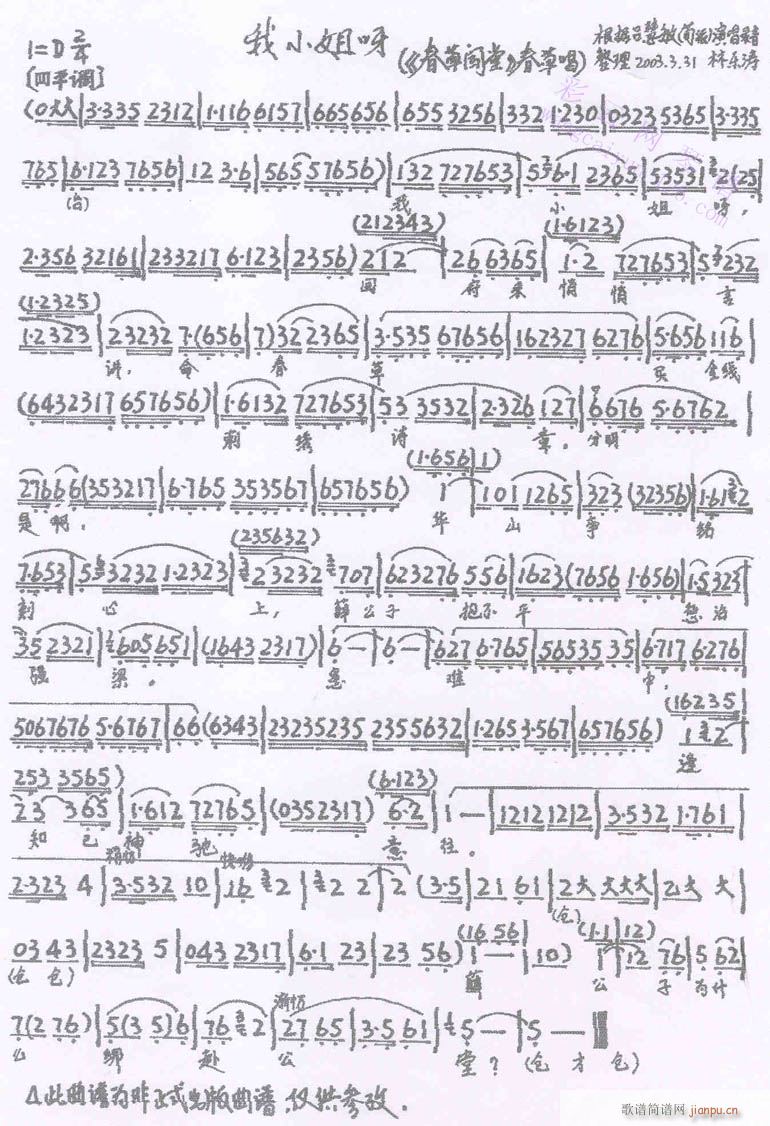 我小姐呀
1=D 2/4 (《春草闯堂》春草唱) 根据吕慧敏(荀派)演唱录音
[四平调] 整理 2003.3.31 林东涛
(0大大|3·335 2312|1·116 6157|665656|655 3256|332 1·230|0323 5365|3·335
765|6·123 7656|12 3·6|565 57656)|132 727653|5 6·1 2365|53531 2(25|
(台) 我 小 姐 呀,
(212343) (1·6123)
2·356 32161|233217 6·123|2356) 212|26 6365|1·2 727653|5 3232
回 府 来 悄 悄 言
(1·2325)
1·2323|23232 7·(656|7) 32 2365|3·535 67656|162327 6276|5·656 116|
讲, 命 春 草 买 金线
(6432317 657656)|1·6132 727653|53 3532|2·326 127|6676 5·6762|
刺 绣 诗 章, 分明
(1·656|1)
27666(353217|6·765 353567|657656) 1|101 1265|323 (32356)|1·61 2
是啊, 华 山 争 铭
(235632)
7·653|5 3232 1·2323|2 3232 707|623276 556|1623(7656 1·656)|1·5323|
刻 心 上, 薛公子 抱不平 惩治
35 2321|605651|(1643 2317)|6 —|6 —|627 6·765|56535 35|6·717 6·276|
强 梁, 急 难 中,
(16235
5067676 5·6767|66 (6343)|23235235 2355632|1·265 3·567|657656) 1 2
逢
253 3565) (6·123)
23 365|1·612 72765|(0352317) 6·2|1 —|1212 1212|3·532 1·761|
知 己 神 驰 意 往。
稍快 快板
2·323 4|3·532 10|16 2|2 2|2 (3·5|21 61|2大 大大大|乙大 大|
(仓)
(16 56) (1·1|12)
03 43|2323 5|043 2317|6·1 23|23 56) 1 —|10) 1|12 76|5 62|
(仓 仓) 薛 公 子 为什
渐慢
7(2 76)|5(3 5)6|76 2|27 65|3·5 61|5 —|5 —‖
么 绑 赴 公 堂? (仓 才 仓)
△此曲谱为非正式出版曲谱,仅供参改.
歌谱简谱网 jianpu.cn